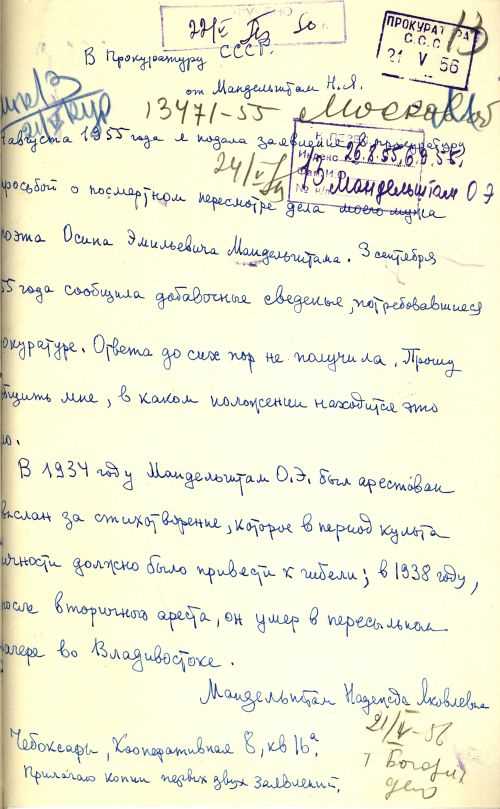 22/V 50
ПРОКУРАТУРА
С С С Р
21 V 56
13
В Прокуратуру
СССР.
от Мандельштам Н.Я.
13471-55 Москва
августа 1955 года я подала заявление в прокуратуру
26.8.55, 6.9.55.
24/V
О Мандельштам О Э
просьбой о посмертном пересмотре дела моего мужа
поэта Осипа Эмильевича Мандельштама. 3 сентября
55 года сообщила добавочные сведенье, потребовавшиеся
прокуратуре. Ответа до сих пор не получила. Прошу
общить мне, в каком положении находится это
ло.
В 1934 году Мандельштам О.Э. был арестован
выслан за стихотворение, которое в период культа
ичности должно было привести к гибели; в 1938 году,
после вторичного ареста, он умер в пересыльном
лагере во Владивостоке.
Мандельштам Надежда Яковлевна
21/V-56
Чебоксары, Кооперативная 8, кв 16а.
дело
Прилагаю копии первых двух заявлений.